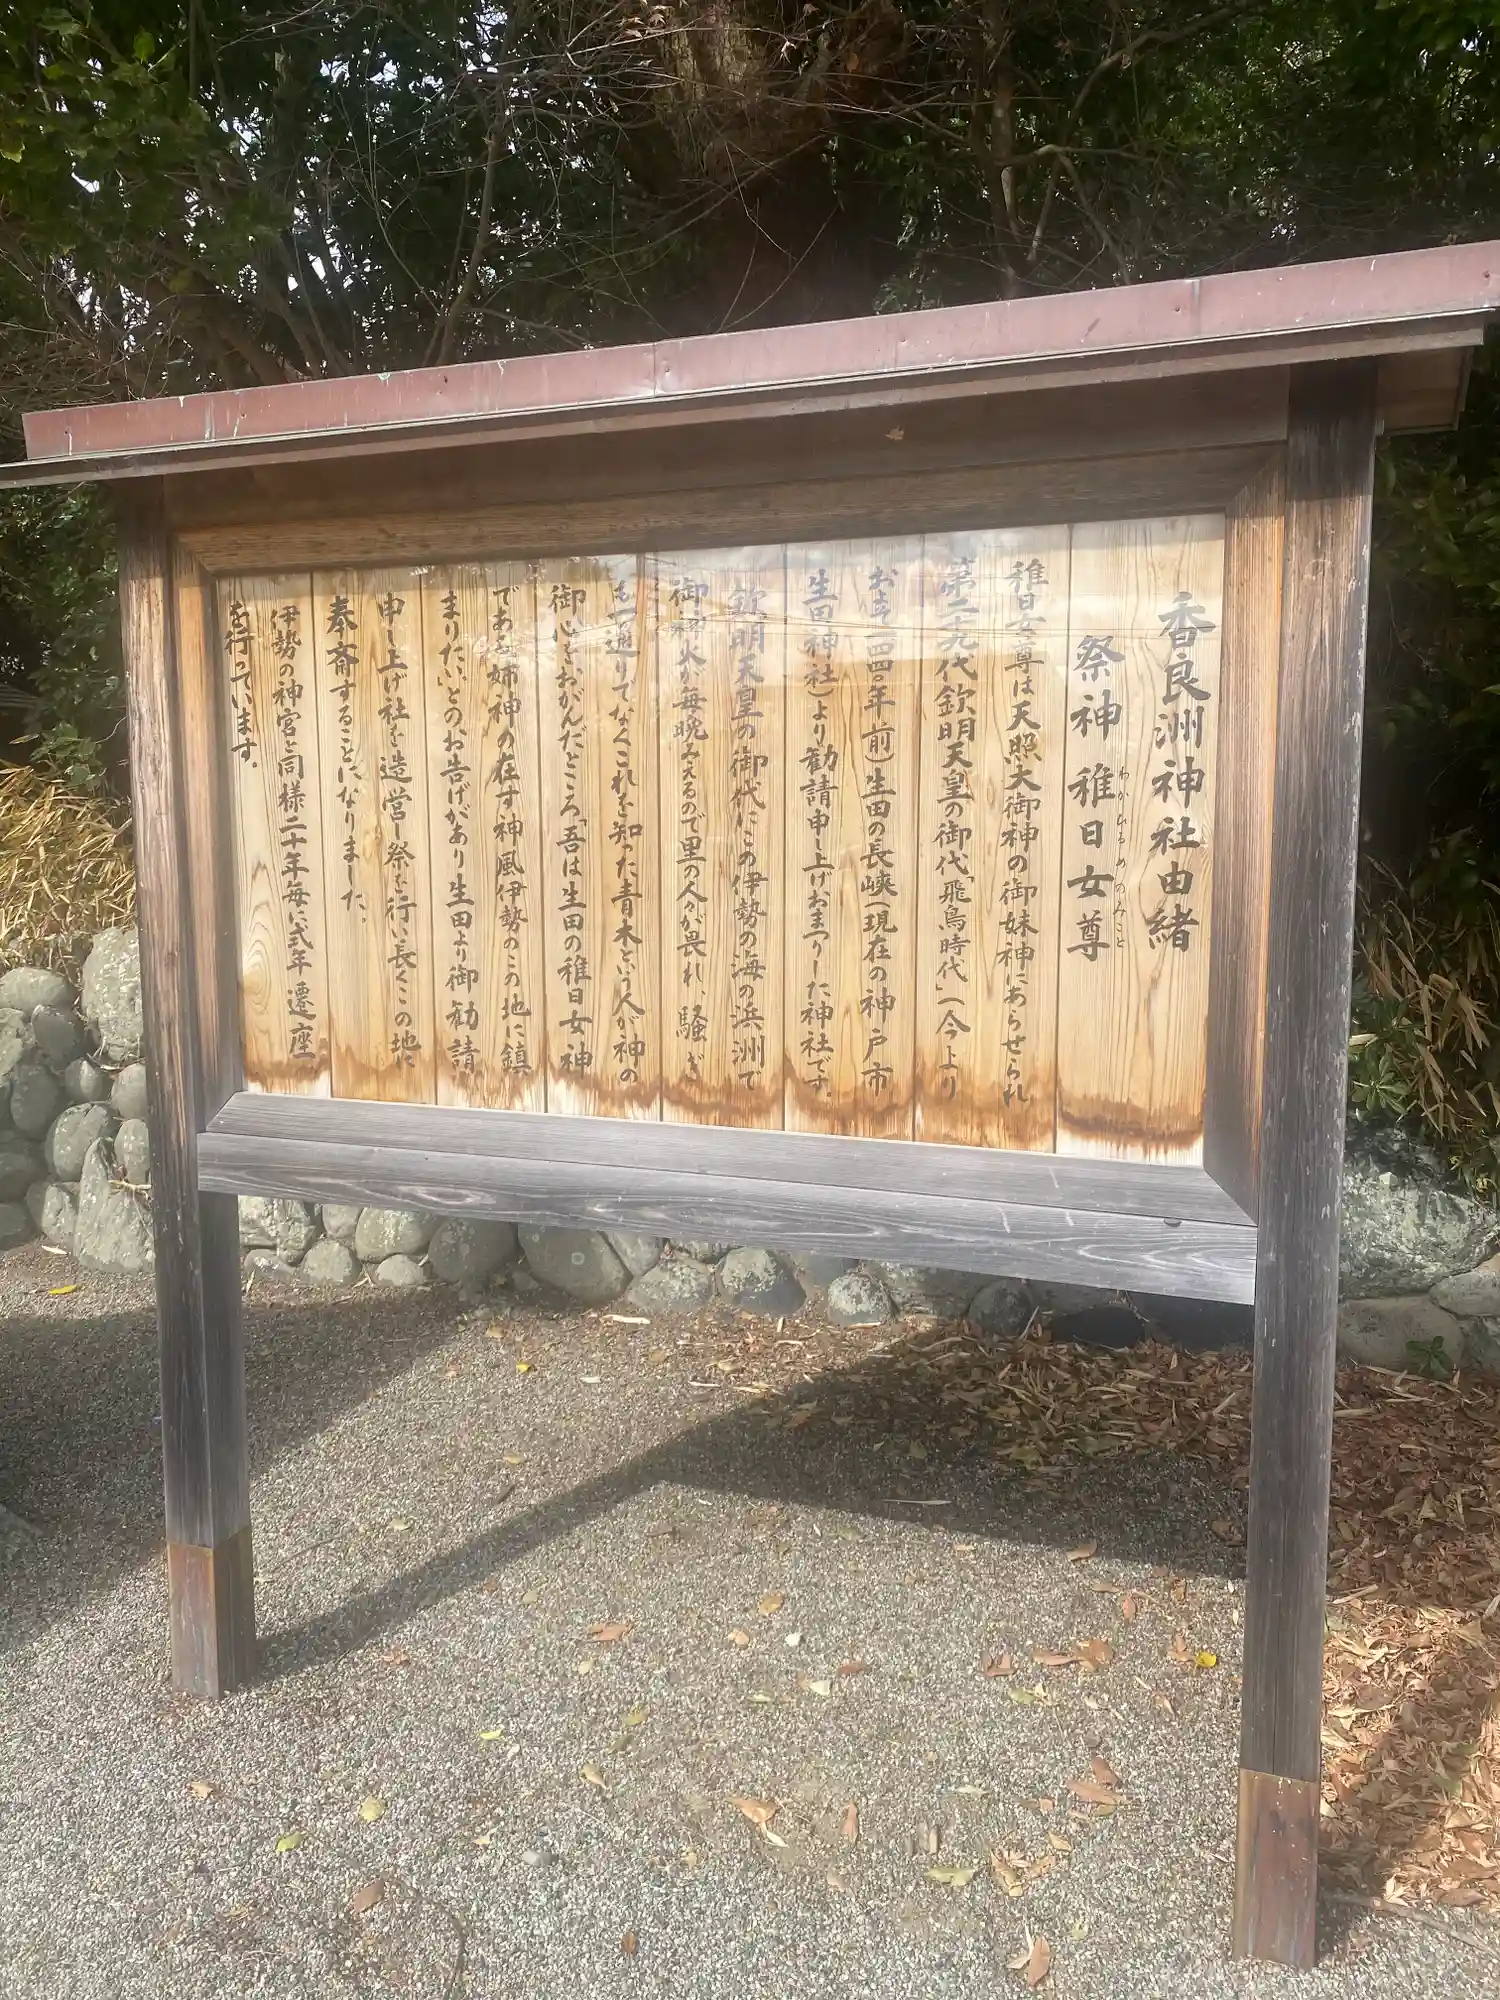 香良洲神社由緒
祭神 稚日女尊
わかひるめのみこと
稚日女尊は天照大御神の御妹神にあらせられ
第二十九代欽明天皇の御代「飛鳥時代」（今より
およそ一四四〇年前）生田の長峡（現在の神戸市
生田神社）より勧請申し上げおまつりした神社です。
欽明天皇の御代にこの伊勢の海の浜洲で
御神火が毎晩みえるので里の人々が畏れ、騒ぎ
も一通りでなくこれを知った青木という人が神の
御心をおがんだところ「吾は生田の稚日女神
である姉神の在す神風伊勢のこの地に鎮
まりたい」とのお告げがあり生田より御勧請
申し上げ社を造営し祭を行い長くこの地に
奉斎することになりました。
伊勢の神宮と同様二十年毎に式年遷座
を行っています。